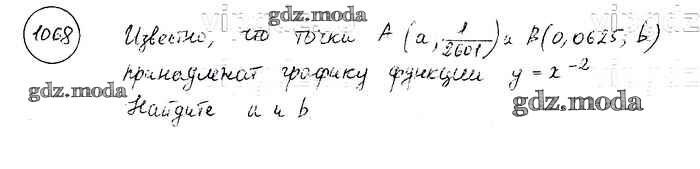 1068 Известно, что точки A (a, 1/2601) и B(0,0625; b)
принадлежат графику функции y = x⁻²
Найдите a и b
gdz.moda
gdz.moda
gdz.moda
gdz.moda